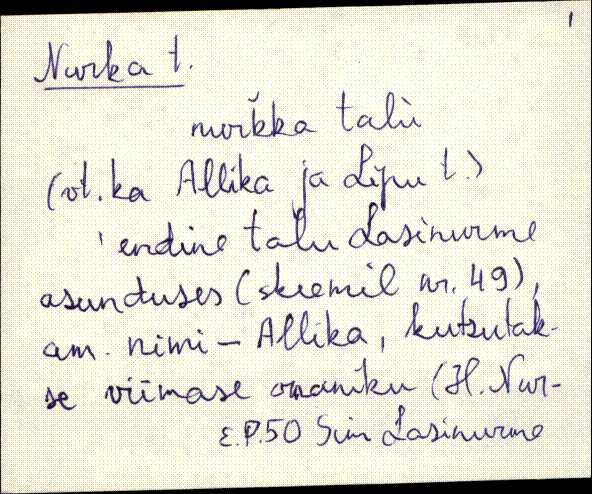 1
Nurka t.
nurkka talù
(vt. ka Allika ja Lipu t.)
endine talu Lasinurme
asunduses (skeemil nr. 49),
am. nimi – Allika, kutsutak-
se viimase omaniku (H. Nur-
E.P.50 Sim Lasinurme